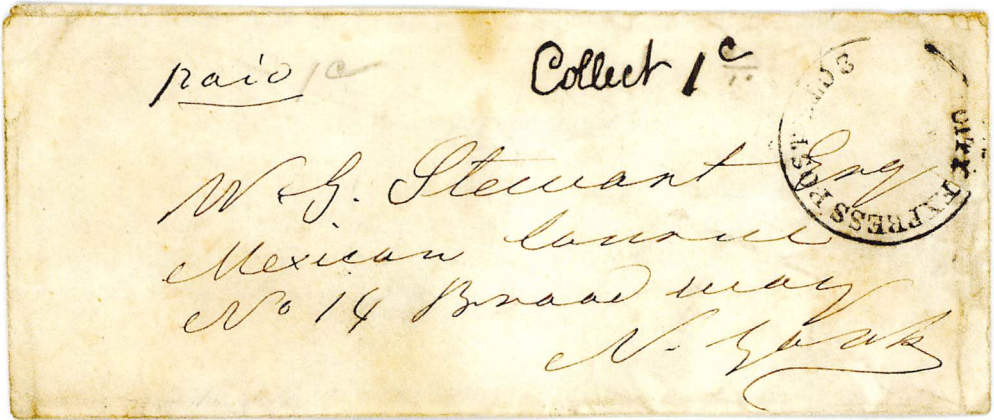 paid 1c
Collect 1c
CITY EXPRESS POST 2 CTS
W. G. Stewart Esq
Mexican Consul
No 14 Broad way
N. York